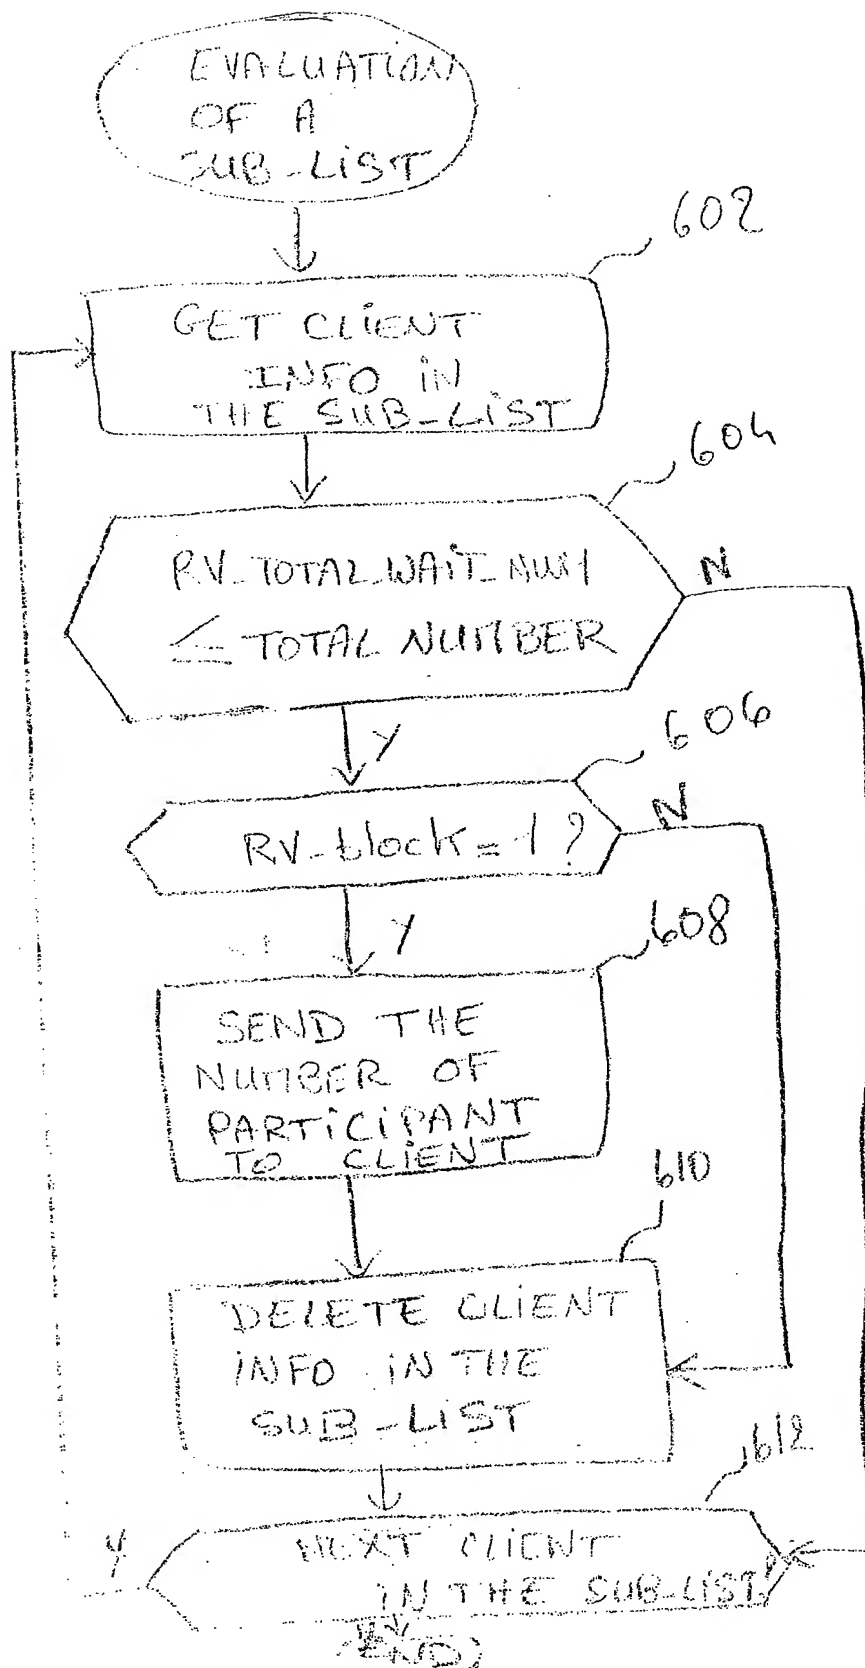 EVALUATION
OF A
SUB-LIST
602
GET CLIENT
INFO IN
THE SUB-LIST
604
RV-TOTAL-WAIT-NUM
N
≤ TOTAL NUMBER
Y
606
RV-block = 1 ?
N
Y
608
SEND THE
NUMBER OF
PARTICIPANT
TO CLIENT
610
DELETE CLIENT
INFO IN THE
SUB-LIST
612
Y
NEXT CLIENT
IN THE SUB-LIST?
END